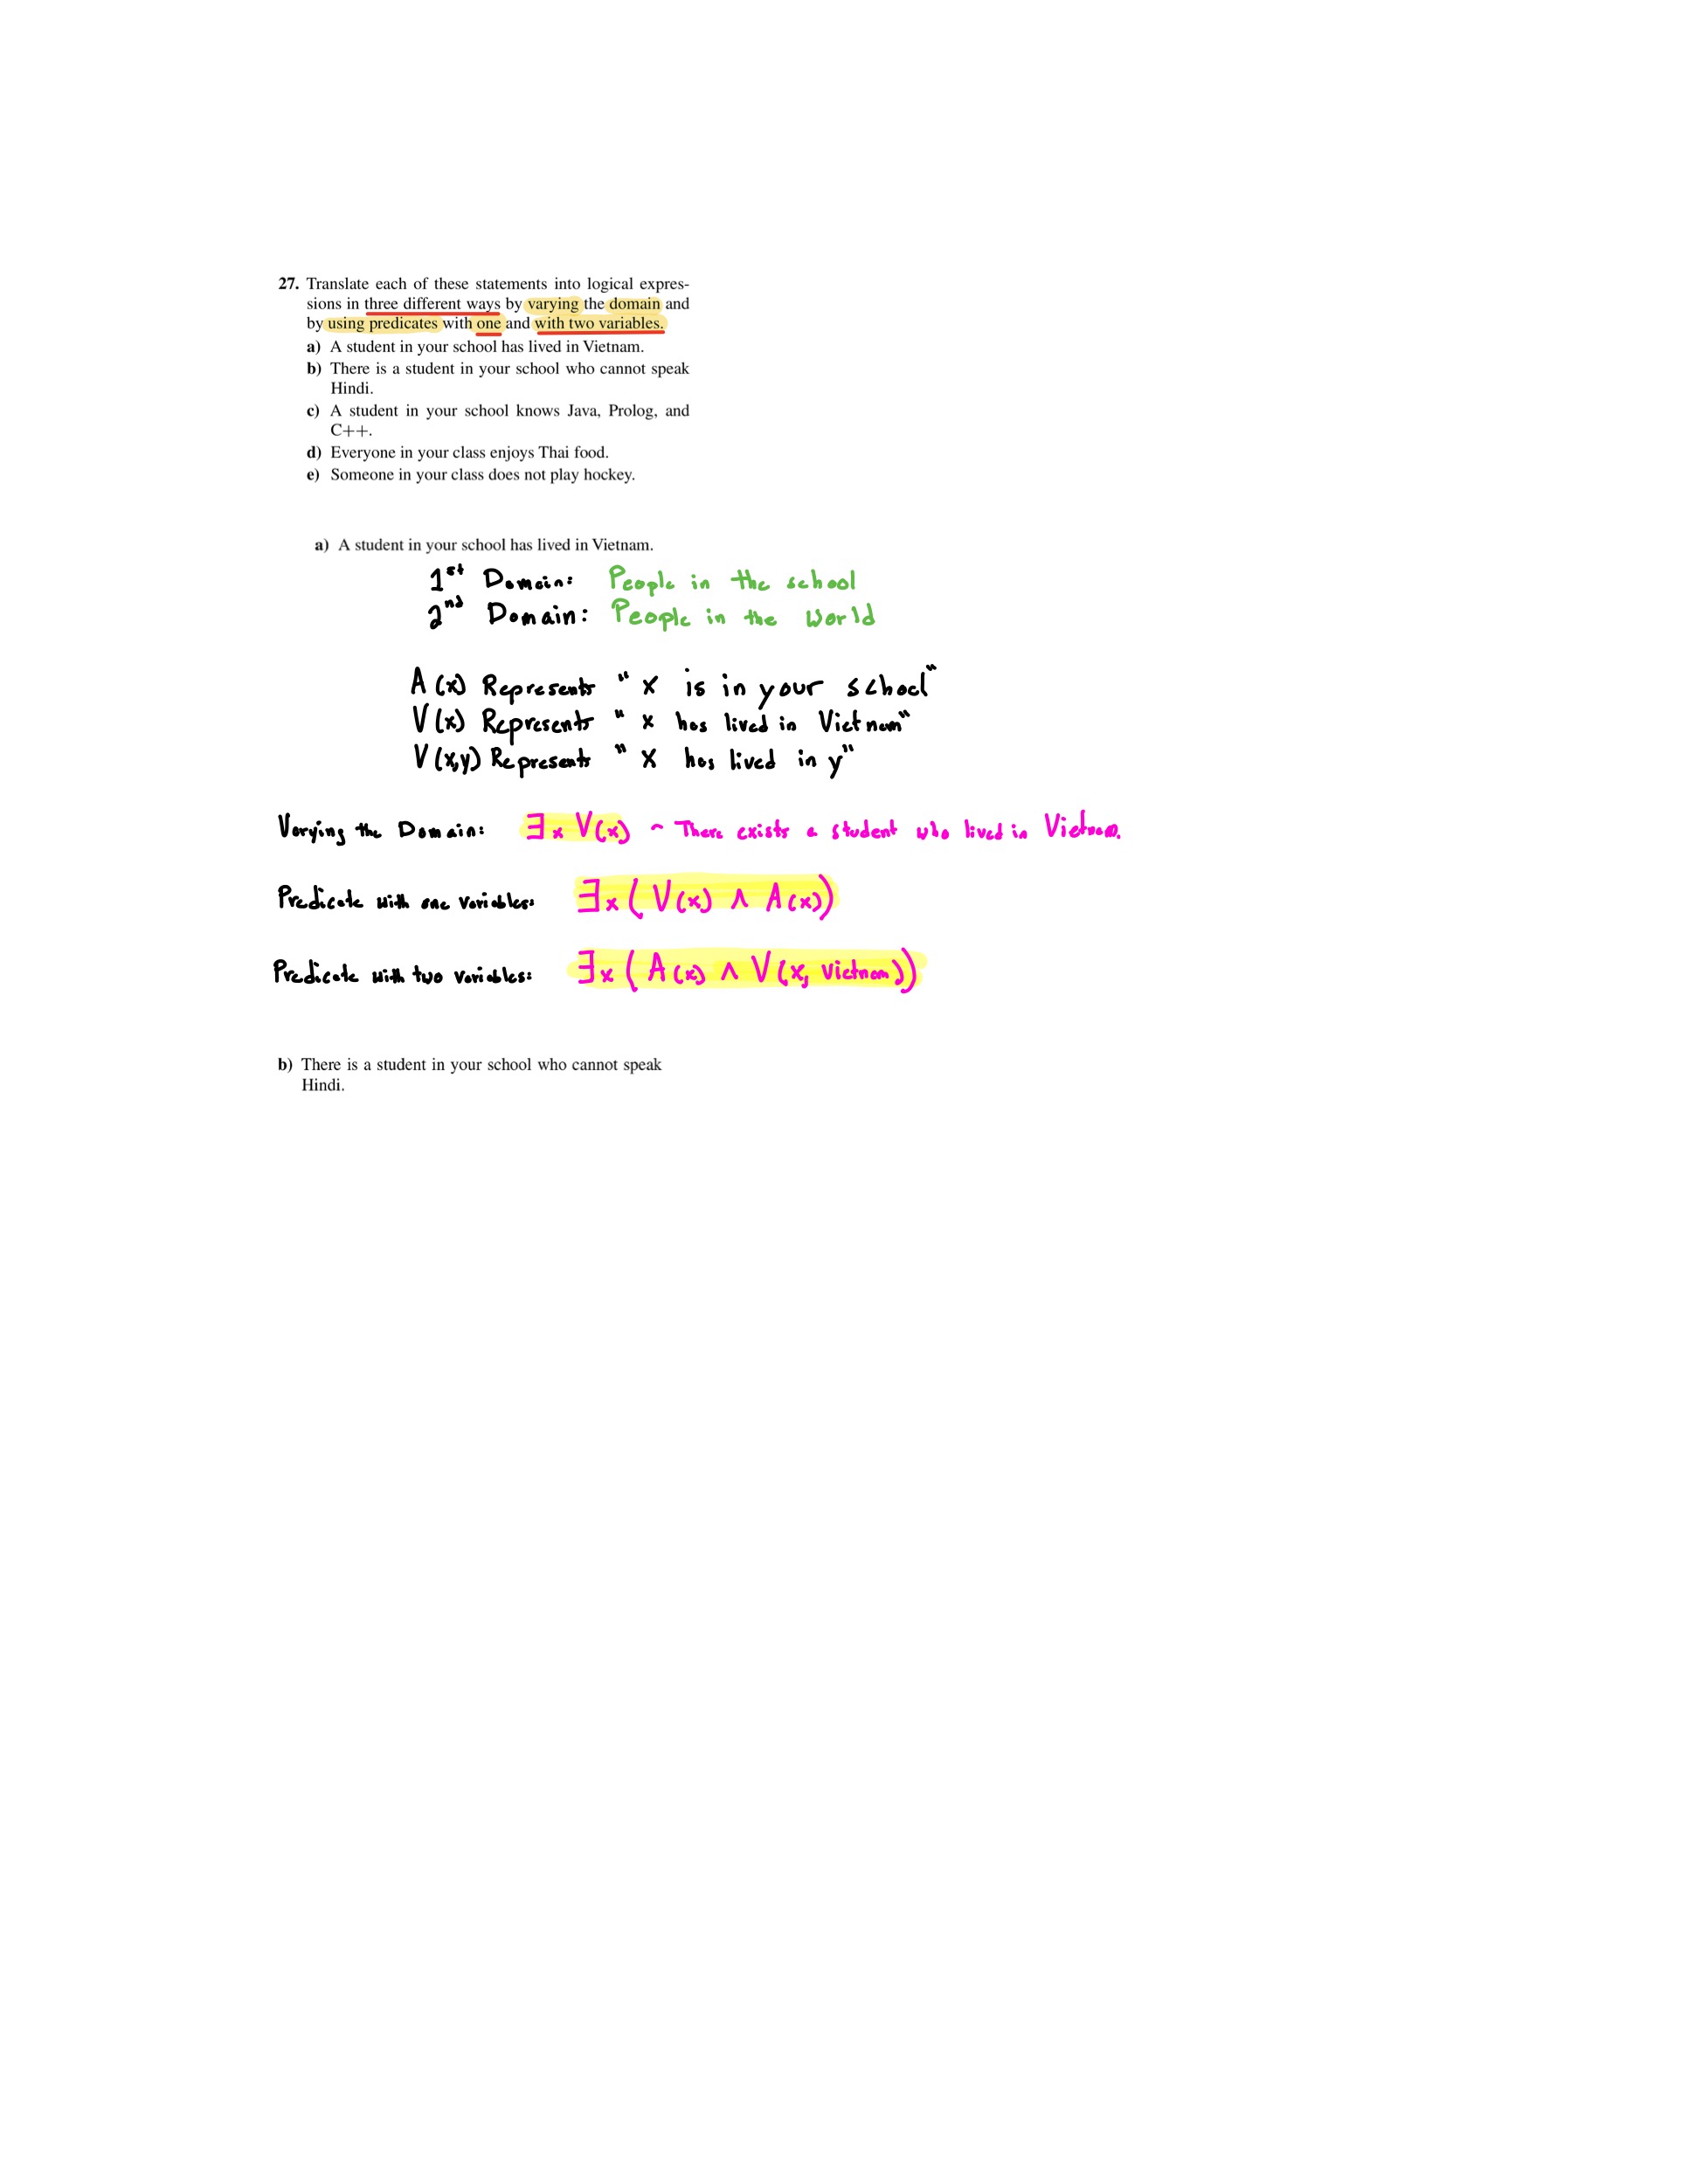 27. Translate each of these statements into logical expres-
sions in three different ways by varying the domain and
by using predicates with one and with two variables.
a) A student in your school has lived in Vietnam.
b) There is a student in your school who cannot speak
Hindi.
c) A student in your school knows Java, Prolog, and
C++.
d) Everyone in your class enjoys Thai food.
e) Someone in your class does not play hockey.
a) A student in your school has lived in Vietnam.
1st Domain: People in the school
2nd Domain: People in the World
A(x) Represents "x is in your school"
V(x) Represents "x has lived in Vietnam"
V(x,y) Represents "x has lived in y"
Varying the Domain: ∃x V(x) ~ There exists a student who lived in Vietnam.
Predicate with one variables: ∃x (V(x) ∧ A(x))
Predicate with two variables: ∃x (A(x) ∧ V(x, Vietnam))
b) There is a student in your school who cannot speak
Hindi.